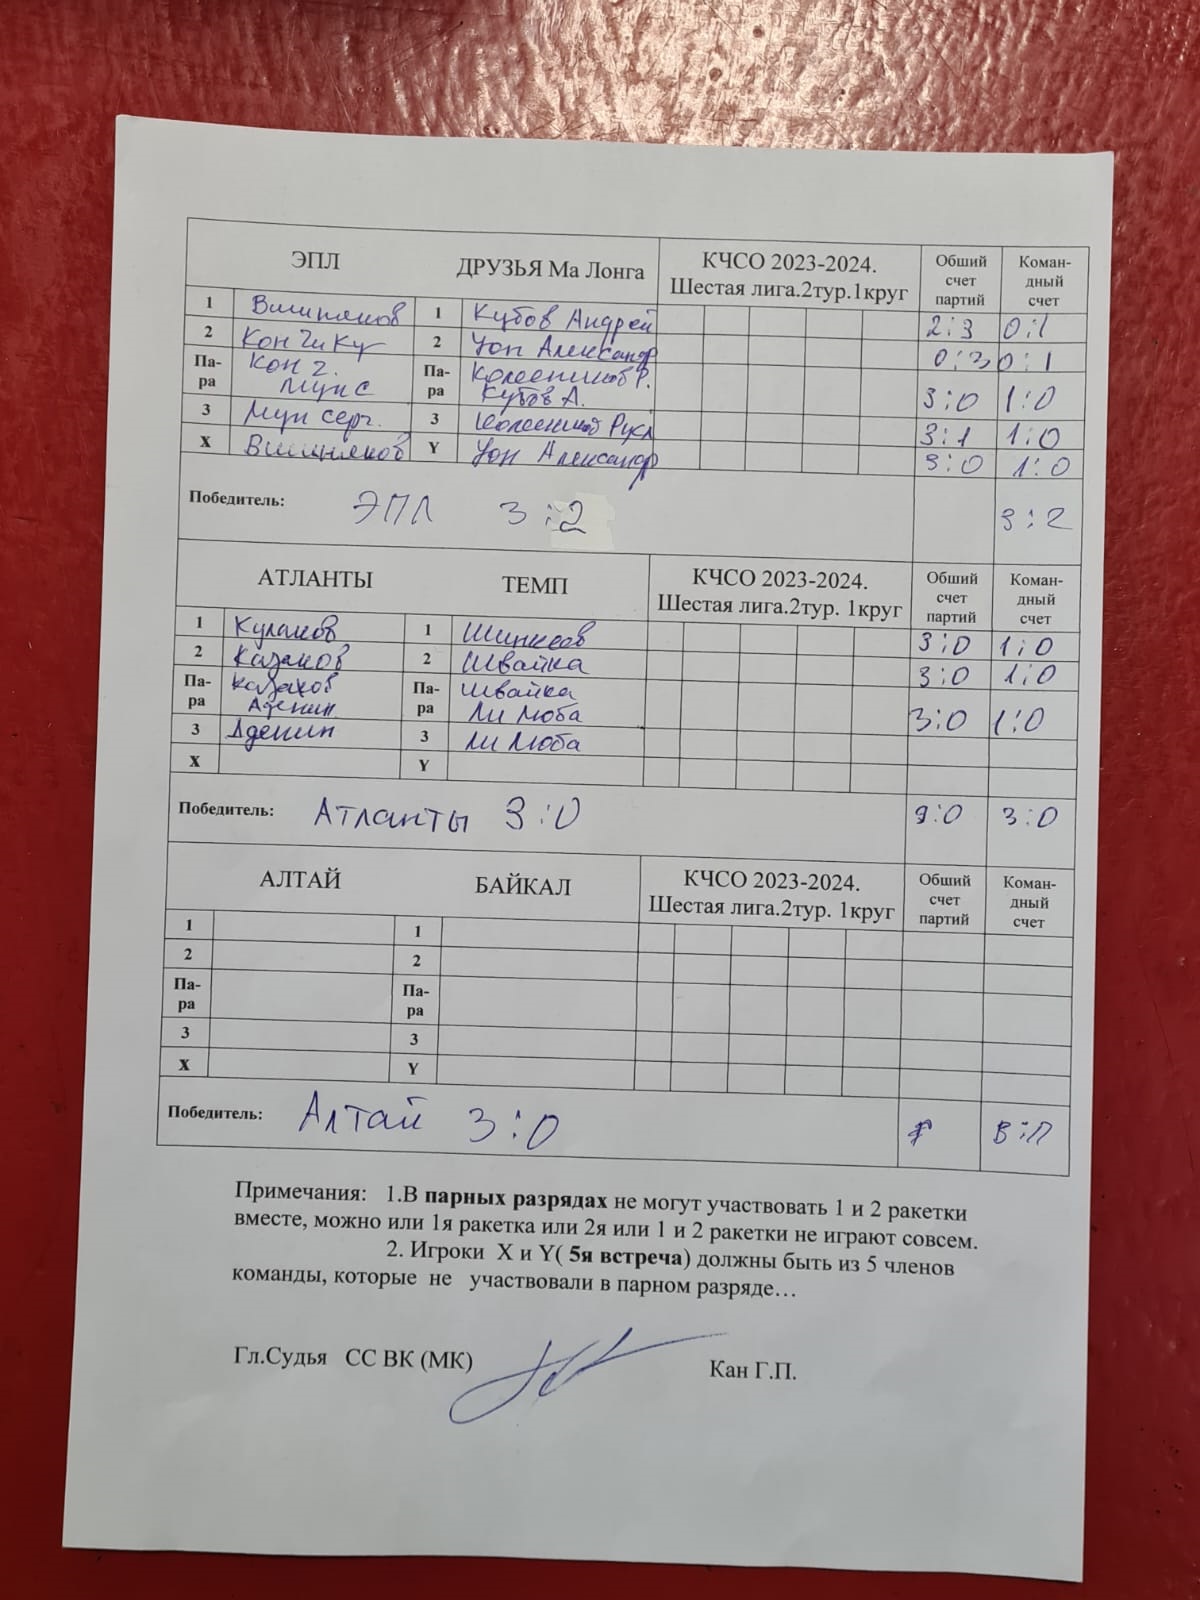 ЭПЛ ДРУЗЬЯ Ма Лонга КЧСО 2023-2024. Шестая лига.2тур.1круг Обший счет партий Коман-дный счет
1 Вишняков 1 Кубов Андрей 2:3 0:1
2 Кон Чи Ку 2 Уон Александр 0:3 0:1
Па-ра Кон Ч. Мун С Па-ра Колесников Р. Кубов А. 3:0 1:0
3 Мун серг. 3 Колесников Русл 3:1 1:0
X Вишняков Y Уон Александр 3:0 1:0
Победитель: ЭПЛ 3:2 3:2
АТЛАНТЫ ТЕМП КЧСО 2023-2024. Шестая лига.2тур. 1круг Обший счет партий Коман-дный счет
1 Кулаков 1 3:0 1:0
2 Казаков 2 Швайка 3:0 1:0
Па-ра Казаков Аденин Па-ра Швайка Ли Люба 3:0 1:0
3 Аденин 3 Ли Люба
X Y
Победитель: Атланты 3:0 9:0 3:0
АЛТАЙ БАЙКАЛ КЧСО 2023-2024. Шестая лига.2тур. 1круг Обший счет партий Коман-дный счет
1 1
2 2
Па-ра Па-ра
3 3
X Y
Победитель: Алтай 3:0 В:П
Примечания: 1.В парных разрядах не могут участвовать 1 и 2 ракетки
вместе, можно или 1я ракетка или 2я или 1 и 2 ракетки не играют совсем.
2. Игроки X и Y( 5я встреча) должны быть из 5 членов
команды, которые не участвовали в парном разряде…
Гл.Судья СС ВК (МК) Кан Г.П.